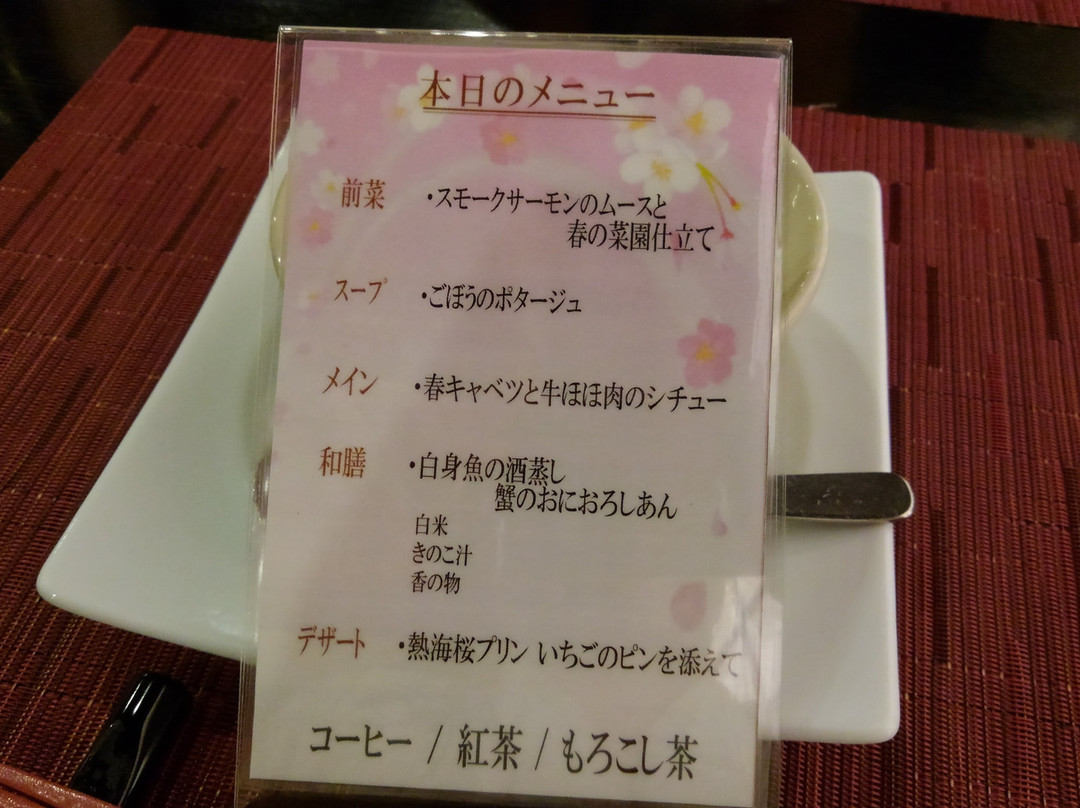 本日のメニュー
前菜 ・スモークサーモンのムースと
春の菜園仕立て
スープ ・ごぼうのポタージュ
メイン ・春キャベツと牛ほほ肉のシチュー
和膳 ・白身魚の酒蒸し
蟹のおにおろしあん
白米
きのこ汁
香の物
デザート ・熱海桜プリン いちごのピンを添えて
コーヒー / 紅茶 / もろこし茶